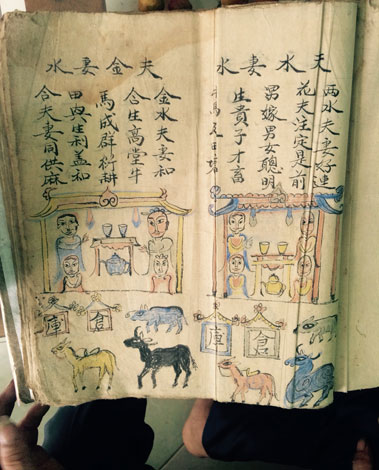 夫水妻水
兩水夫妻好
花夫注定是前
男嫁男女聰明
生貴子才畜
馬
夫金妻水
金水夫妻和
合生高堂牛
馬成群衍耕
田與生利益和
合夫妻同供麻
倉
庫
倉
庫